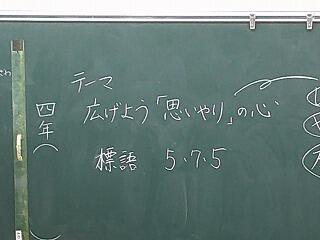 テーマ
広げよう「思いやり」の心
標語 5・7・5
四年(